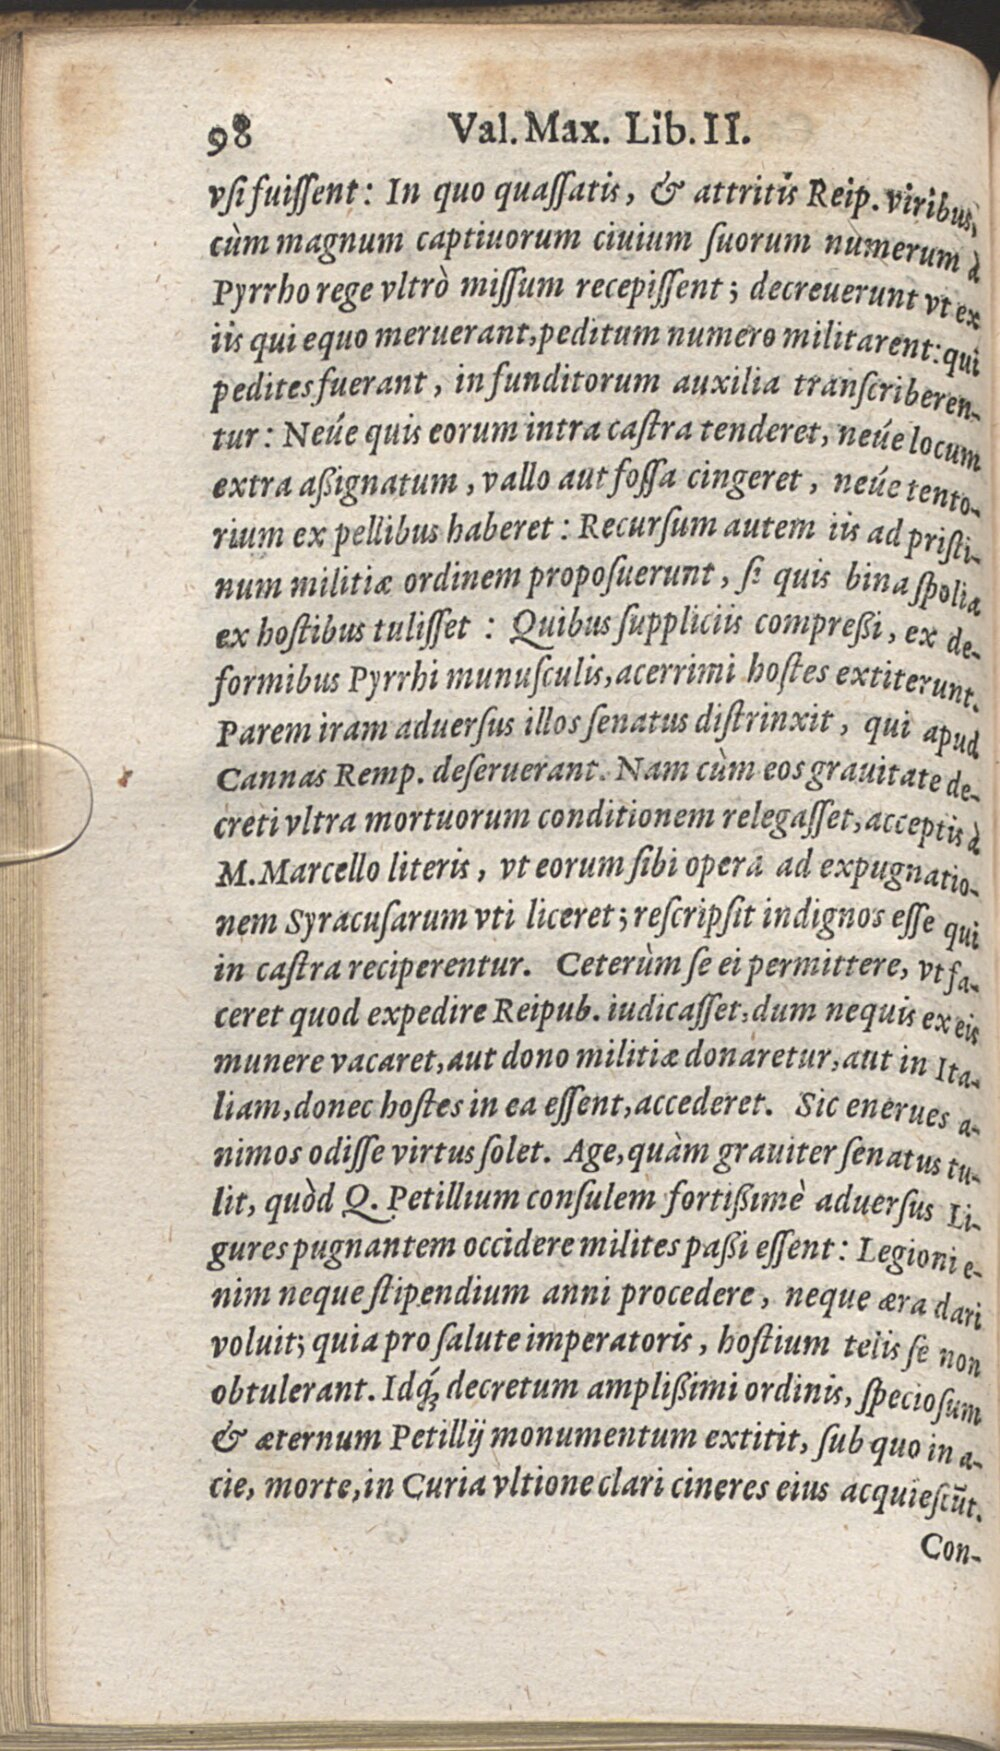 98 Val. Max. Lib. II.
vſi fuiſſent: In quo quaſſatis, & attritis Reip. viribus,
cùm magnum captiuorum ciuium ſuorum numerum à
Pyrrho rege vltrò miſſum recepiſſent; decreuerunt vt ex
iis qui equo meruerant, peditum numero militarent: qui
pedites fuerant, in funditorum auxilia tranſcriberen-
tur: Neúe quis eorum intra caſtra tenderet, neúe locum
extra aßignatum, vallo aut foſſa cingeret, neúe tento-
rium ex pellibus haberet: Recurſum autem iis ad priſti-
num militiæ ordinem propoſuerunt, ſi quis bina ſpolia
ex hoſtibus tuliſſet: Quibus ſuppliciis compreßi, ex de-
formibus Pyrrhi munuſculis, acerrimi hoſtes extiterunt.
Parem iram aduerſus illos ſenatus diſtrinxit, qui apud
Cannas Remp. deſeruerant. Nam cùm eos grauitate de-
creti vltra mortuorum conditionem relegaſſet, acceptis à
M. Marcello literis, vt eorum ſibi opera ad expugnatio-
nem Syracuſarum vti liceret; reſcripſit indignos eſſe qui
in caſtra reciperentur. Ceterùm ſe ei permittere, vt fa-
ceret quod expedire Reipub. iudicaſſet, dum nequis ex eis
munere vacaret, aut dono militiæ donaretur, aut in Ita-
liam, donec hoſtes in ea eſſent, accederet. Sic enerues a-
nimos odiſſe virtus ſolet. Age, quàm grauiter ſenatus tu-
lit, quòd Q. Petillium conſulem fortißimè aduerſus Li-
gures pugnantem occidere milites paßi eſſent: Legioni e-
nim neque ſtipendium anni procedere, neque æra dari
voluit; quia pro ſalute imperatoris, hoſtium telis ſe non
obtulerant. Idq́; decretum amplißimi ordinis, ſpecioſum
& æternum Petillij monumentum extitit, ſub quo in a-
cie, morte, in Curia vltione clari cineres eius acquieſcūt.
Con-